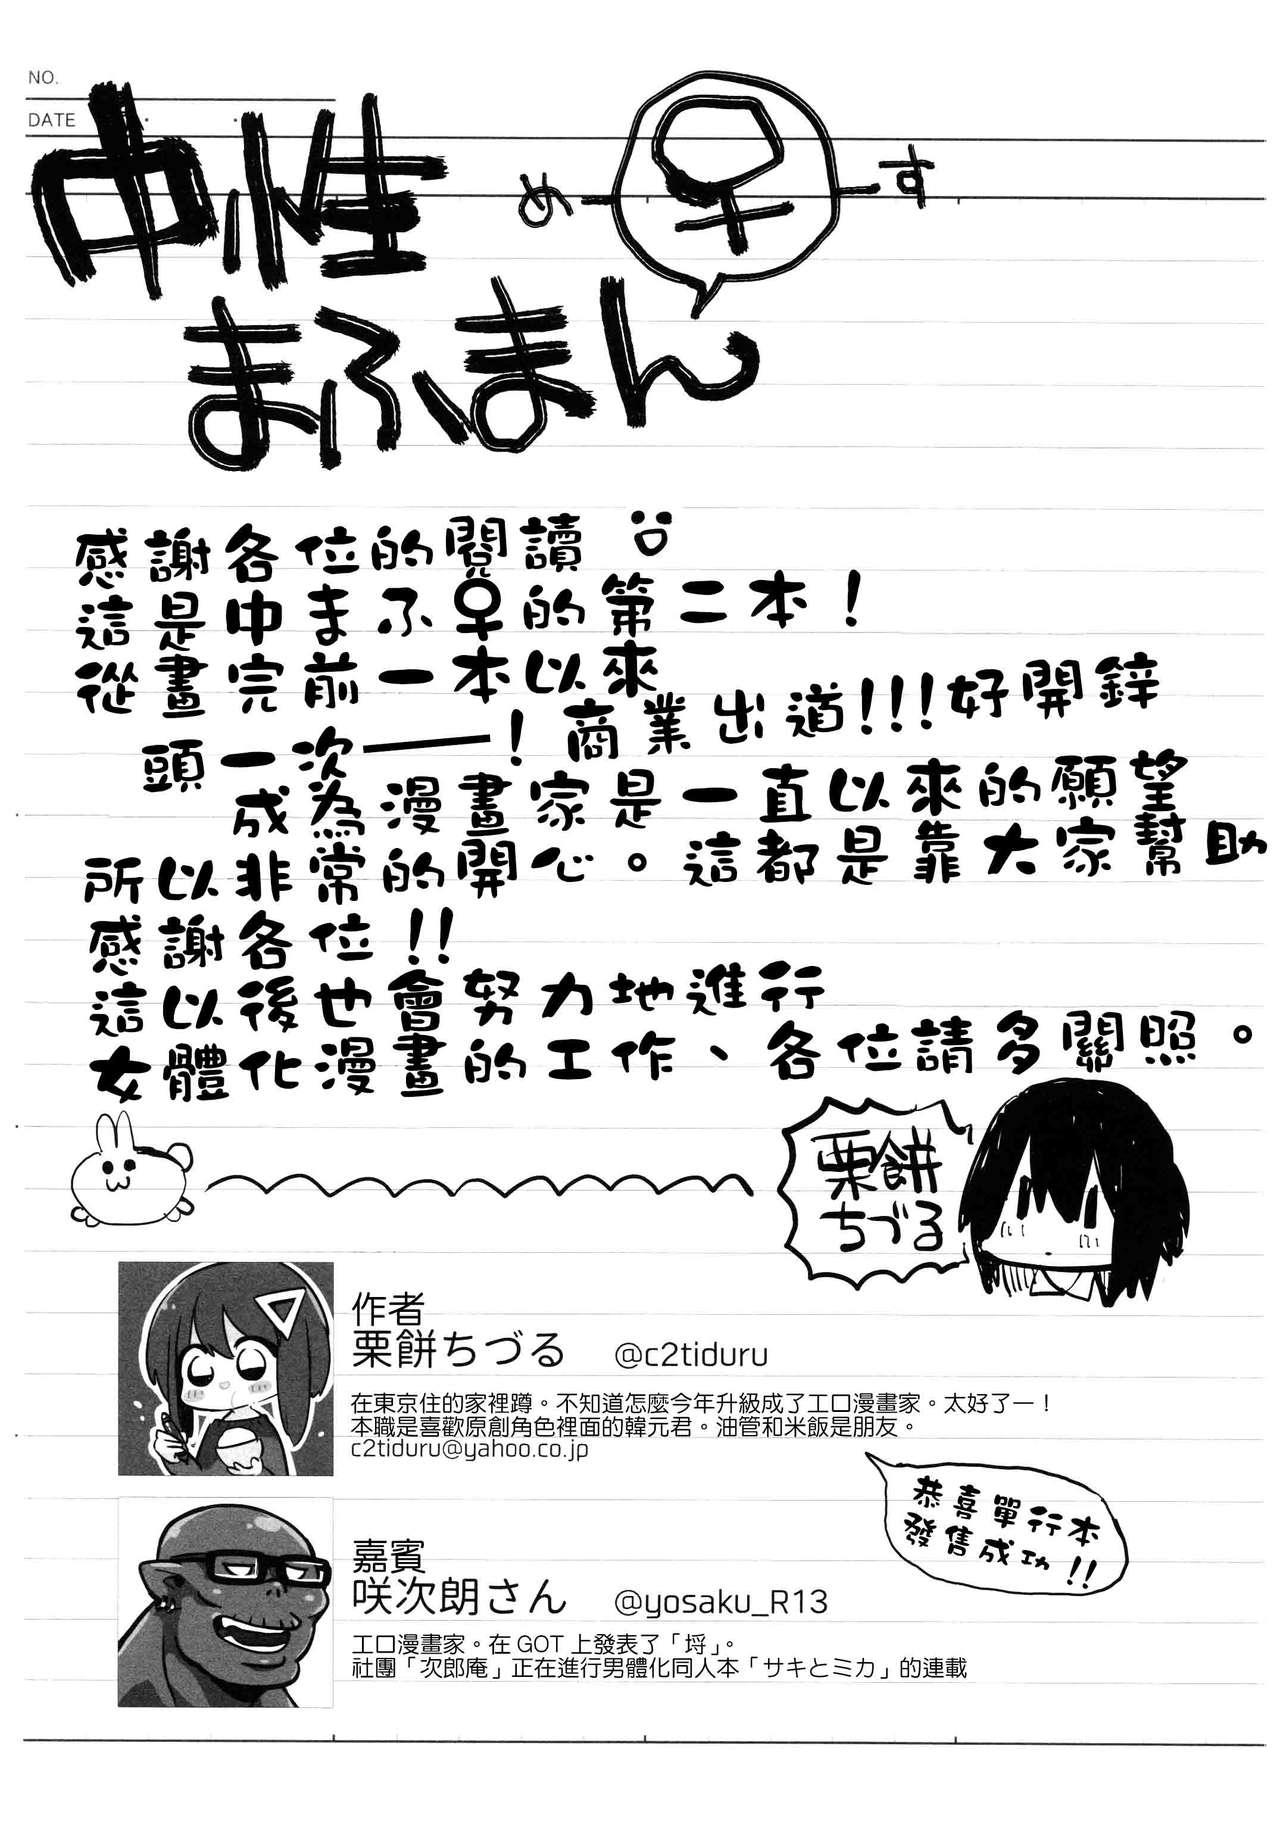 NO.
DATE
中性
め ♀ す
まふまん
感謝各位的閱讀
這是中まふ♀的第二本！
從畫完前一本以來
頭一次──！商業出道!!!好開鋅
成為漫畫家是一直以來的願望
所以非常的開心。這都是靠大家幫助
感謝各位!!
這以後也會努力地進行
女體化漫畫的工作、各位請多關照。
栗餅
ちづる
作者
栗餅ちづる @c2tiduru
在東京住的家裡蹲。不知道怎麼今年升級成了工口漫畫家。太好了ー！
本職是喜歡原創角色裡面的韓元君。油管和米飯是朋友。
c2tiduru@yahoo.co.jp
恭喜單行本
發售成功!!
嘉賓
咲次朗さん @yosaku_R13
工口漫畫家。在 GOT 上發表了「埓」。
社團「次郎庵」正在進行男體化同人本「サキとミカ」的連載